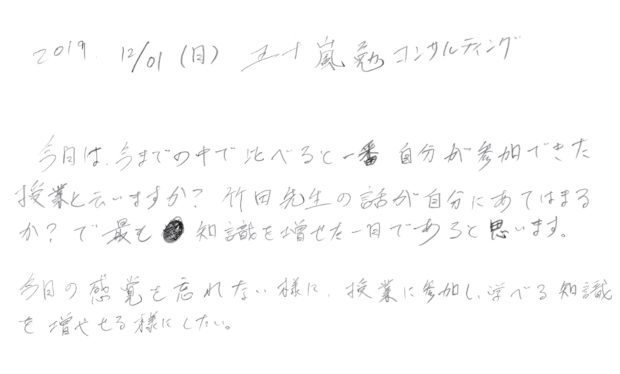 2019. 12/01 (日) 五十嵐勉コンサルティング
今日は、今までの中で比べると一番 自分が参加できた
授業と云いますか? 竹田先生の話が自分にあてはまる
か? で最も 知識を増せた一日であると思います。
今日の感覚を忘れない様に、授業に参加し、学べる知識
を増やせる様にしたい。